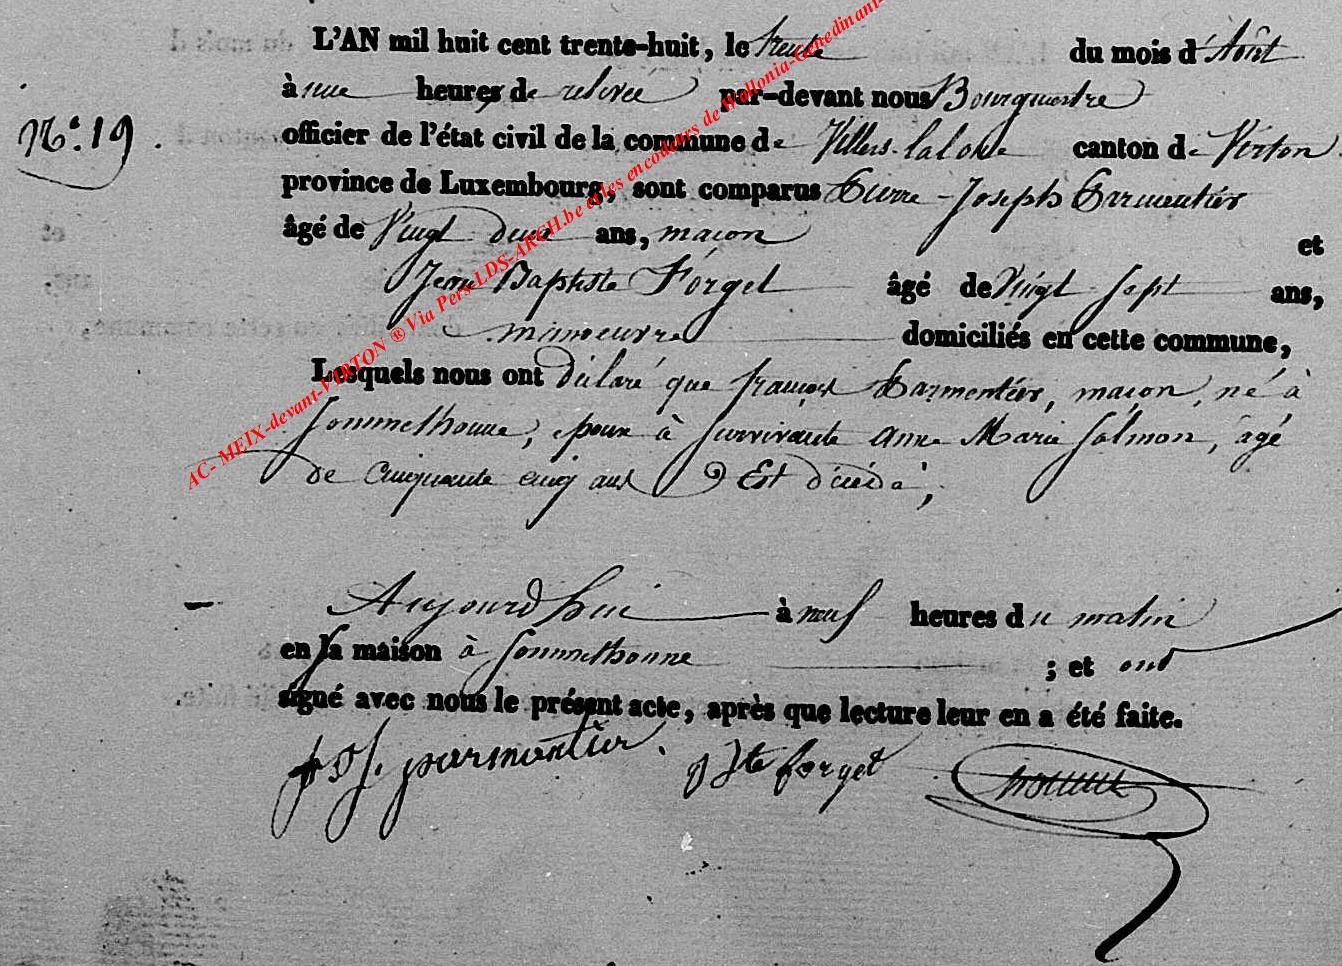 L'AN mil huit cent trente-huit, le trente du mois d'Août
à une heures de relevée par-devant nous Bourguestre
N°. 19.
officier de l'état civil de la commune de Villers-la-loue canton de Virton
province de Luxembourg, sont comparus Pierre-Joseph Parmentier
âgé de Vingt deux ans, maçon et
Jean Baptiste Forget âgé de Vingt sept ans,
manoeuvre domiciliés en cette commune,
Lesquels nous ont déclaré que françois Parmentier, maçon, né à
Sommethonne, époux à survivante Anne Marie Salmon, âgé
de cinquante cinq ans Est décédé;
Aujourd'hui à neuf heures du matin
en sa maison à Sommethonne ; et ont
signé avec nous le présent acte, après que lecture leur en a été faite.
parmentier. forget
AC- MEIX-devant-VIRTON ® Via Pers-LDS-ARCH.be et les encodeurs de Wallonia-Genedinant-